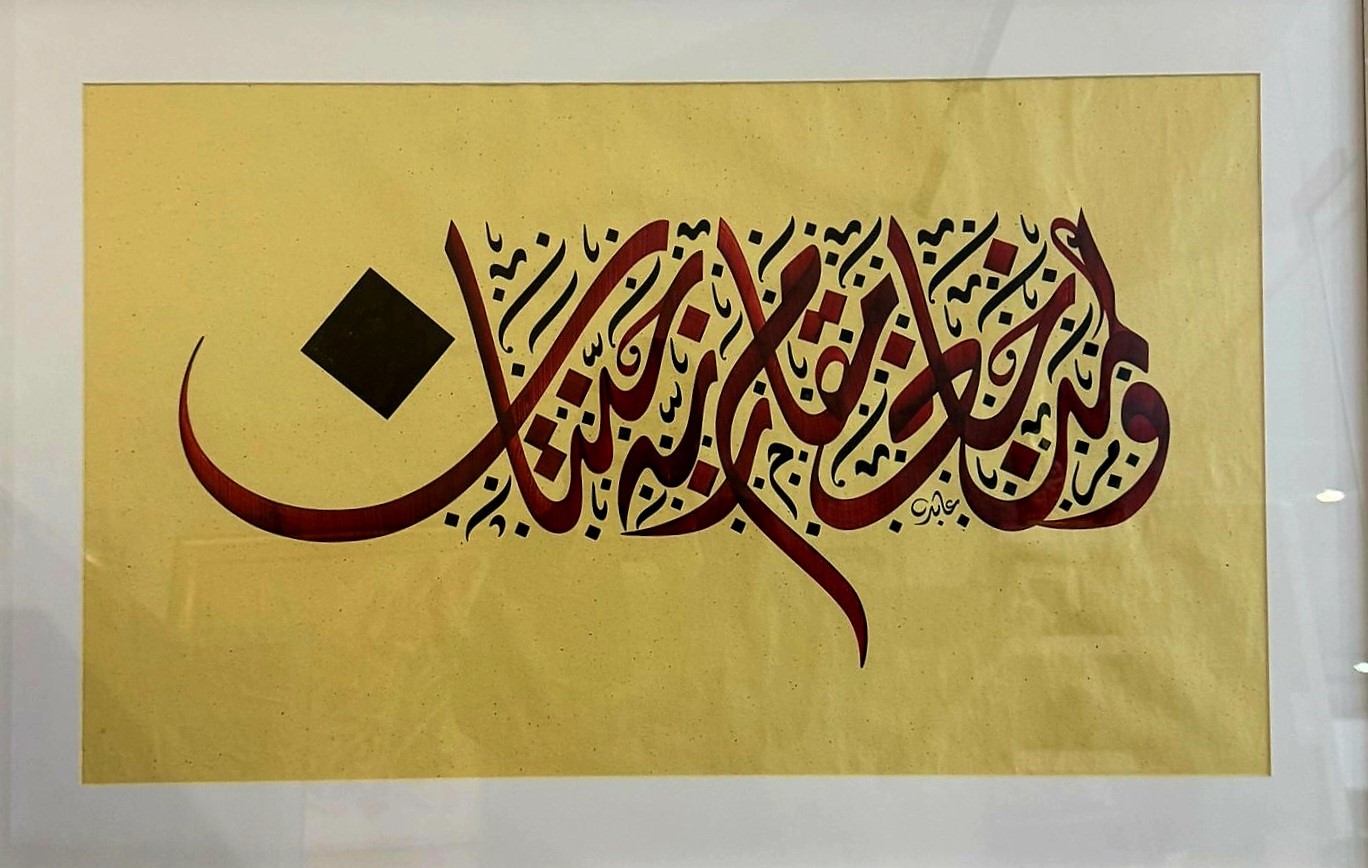 ولمن خاف مقام ربه جنتان
عابد